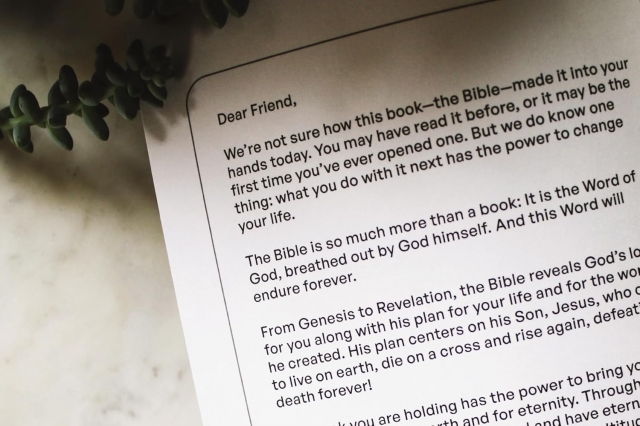 Dear Friend,
We're not sure how this book—the Bible—made it into your
hands today. You may have read it before, or it may be the
first time you've ever opened one. But we do know one
thing: what you do with it next has the power to change
your life.
The Bible is so much more than a book: It is the Word of
God, breathed out by God himself. And this Word will
endure forever.
From Genesis to Revelation, the Bible reveals God's
for you along with his plan for your life and for the
he created. His plan centers on his Son, Jesus, who
to live on earth, die on a cross and rise again,
death forever!
you are holding has the power to bring
and for eternity. Through
and have